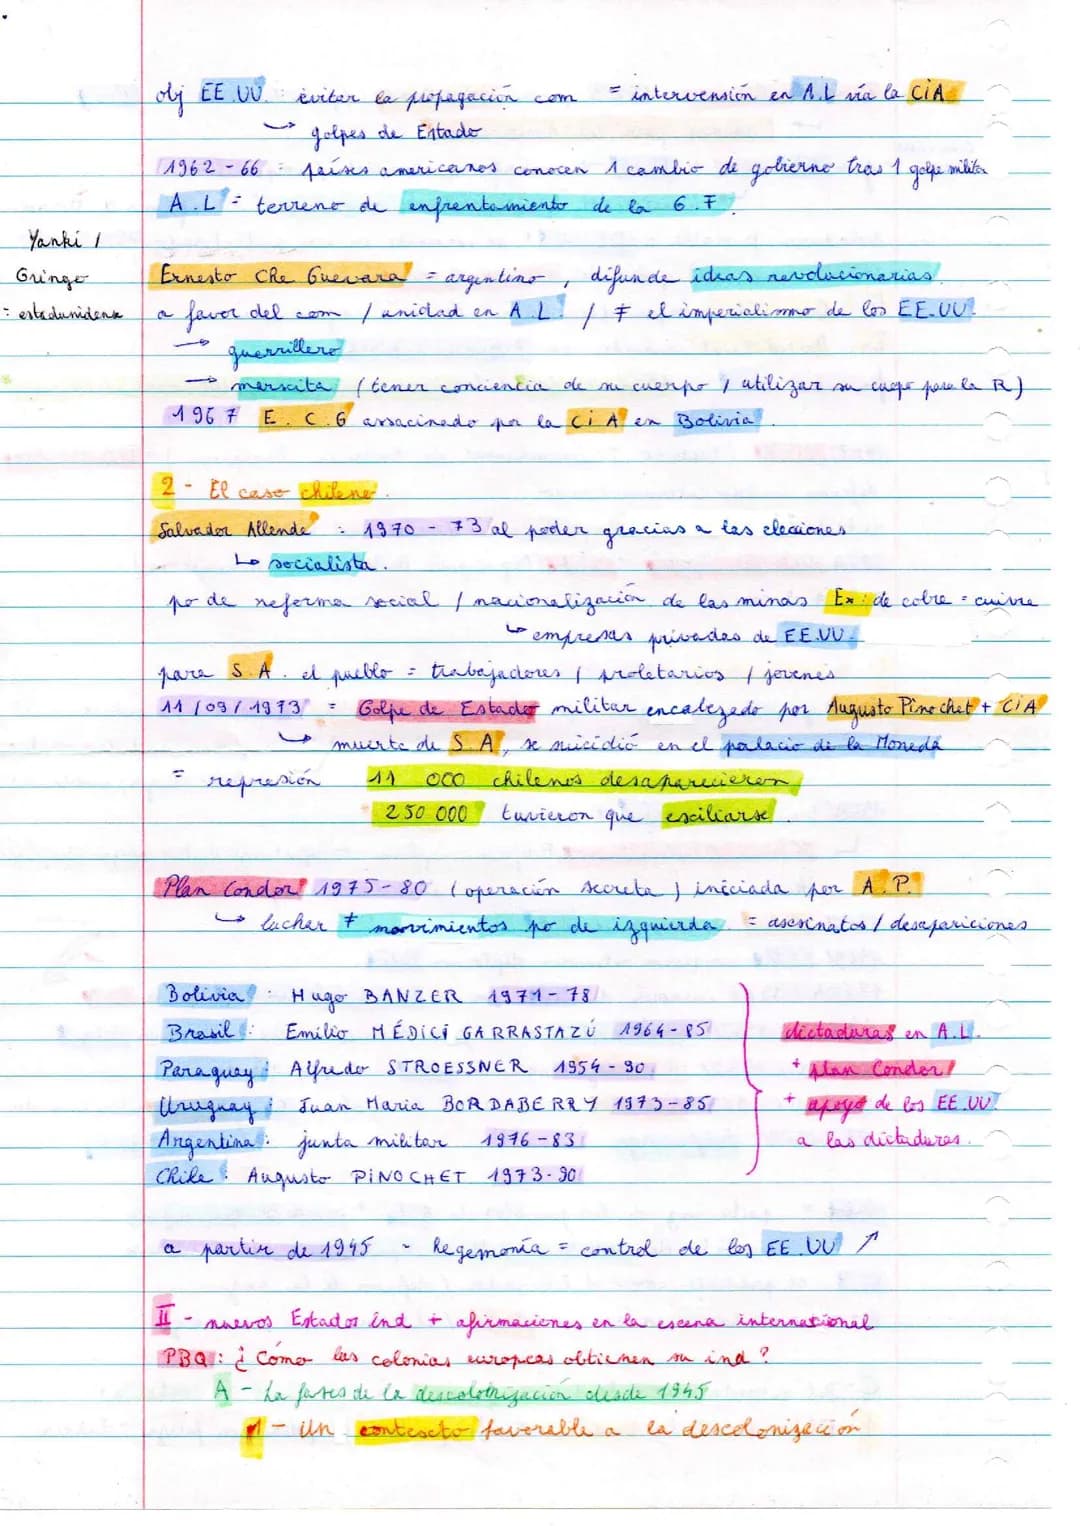 obj EE.UU. évitar la propagación com = intervensión en A.L vía la CiA
→ golpes de Estado
1962-66 = países americanos conocen 1 cambio de gobierno tras 1 golpe militar
A.L = terreno de enfrentamiento de la G.F.
Yanki /
Gringo
= estadunidense
Ernesto Che Guevara = argentino, difunde ideas revolucionarias
a favor del com / unidad en A.L. / ≠ el imperialismo de los EE.UU.
→ guerrillero
→ marxcita (tener conciencia de su cuerpo / utilizar su cuepo para la R)
1967 E.C.G assacinado por la CiA en Bolivia.
2 - El caso chileno.
Salvador Allende : 1970 - 73 al poder gracias a las elecciones
↳ socialista.
po de reforma social / nacionalización de las minas Ex: de cobre = cuivre
↳ empresas privadas de EE.UU.
para S.A. el pueblo = trabajadores / proletarios / jovenes
11/09/1973 = Golpe de Estado militar encabezado por Augusto Pinochet + CiA
↳ muerte de S.A, se suicidió en el palacio de la Moneda
= represión 11 000 chilenos desaparecieron
250 000 tuvieron que exiliarse.
Plan Condor 1975-80 (operación secreta) iniciada por A.P.
↳ luchar ≠ movimientos po de izquierda = asesinatos / desapariciones
Bolivia : Hugo BANZER 1971-78
Brasil : Emilio MÉDICI GARRASTAZÚ 1964-85
Paraguay : Alfredo STROESSNER 1954-90
Uruguay : Juan Maria BORDABERRY 1973-85
Argentina : junta militar 1976-83
Chile : Augusto PINOCHET 1973-90
dictaduras en A.L.
+ plan Condor
+ apoyo de los EE.UU.
a las dictaduras.
a partir de 1945 - hegemonía = control de los EE.UU ↗
II - nuevos Estados ind + afirmaciones en la escena international
PBQ : ¿ Cómo las colonias europeas obtienen su ind ?
A - La fases de la descolonización desde 1945
1 - Un contexto favorable a la descolonización